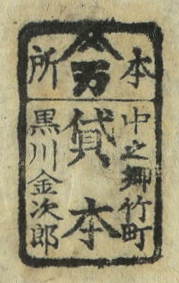 本所
万
中之郷竹町
貸本
黒川金次郎